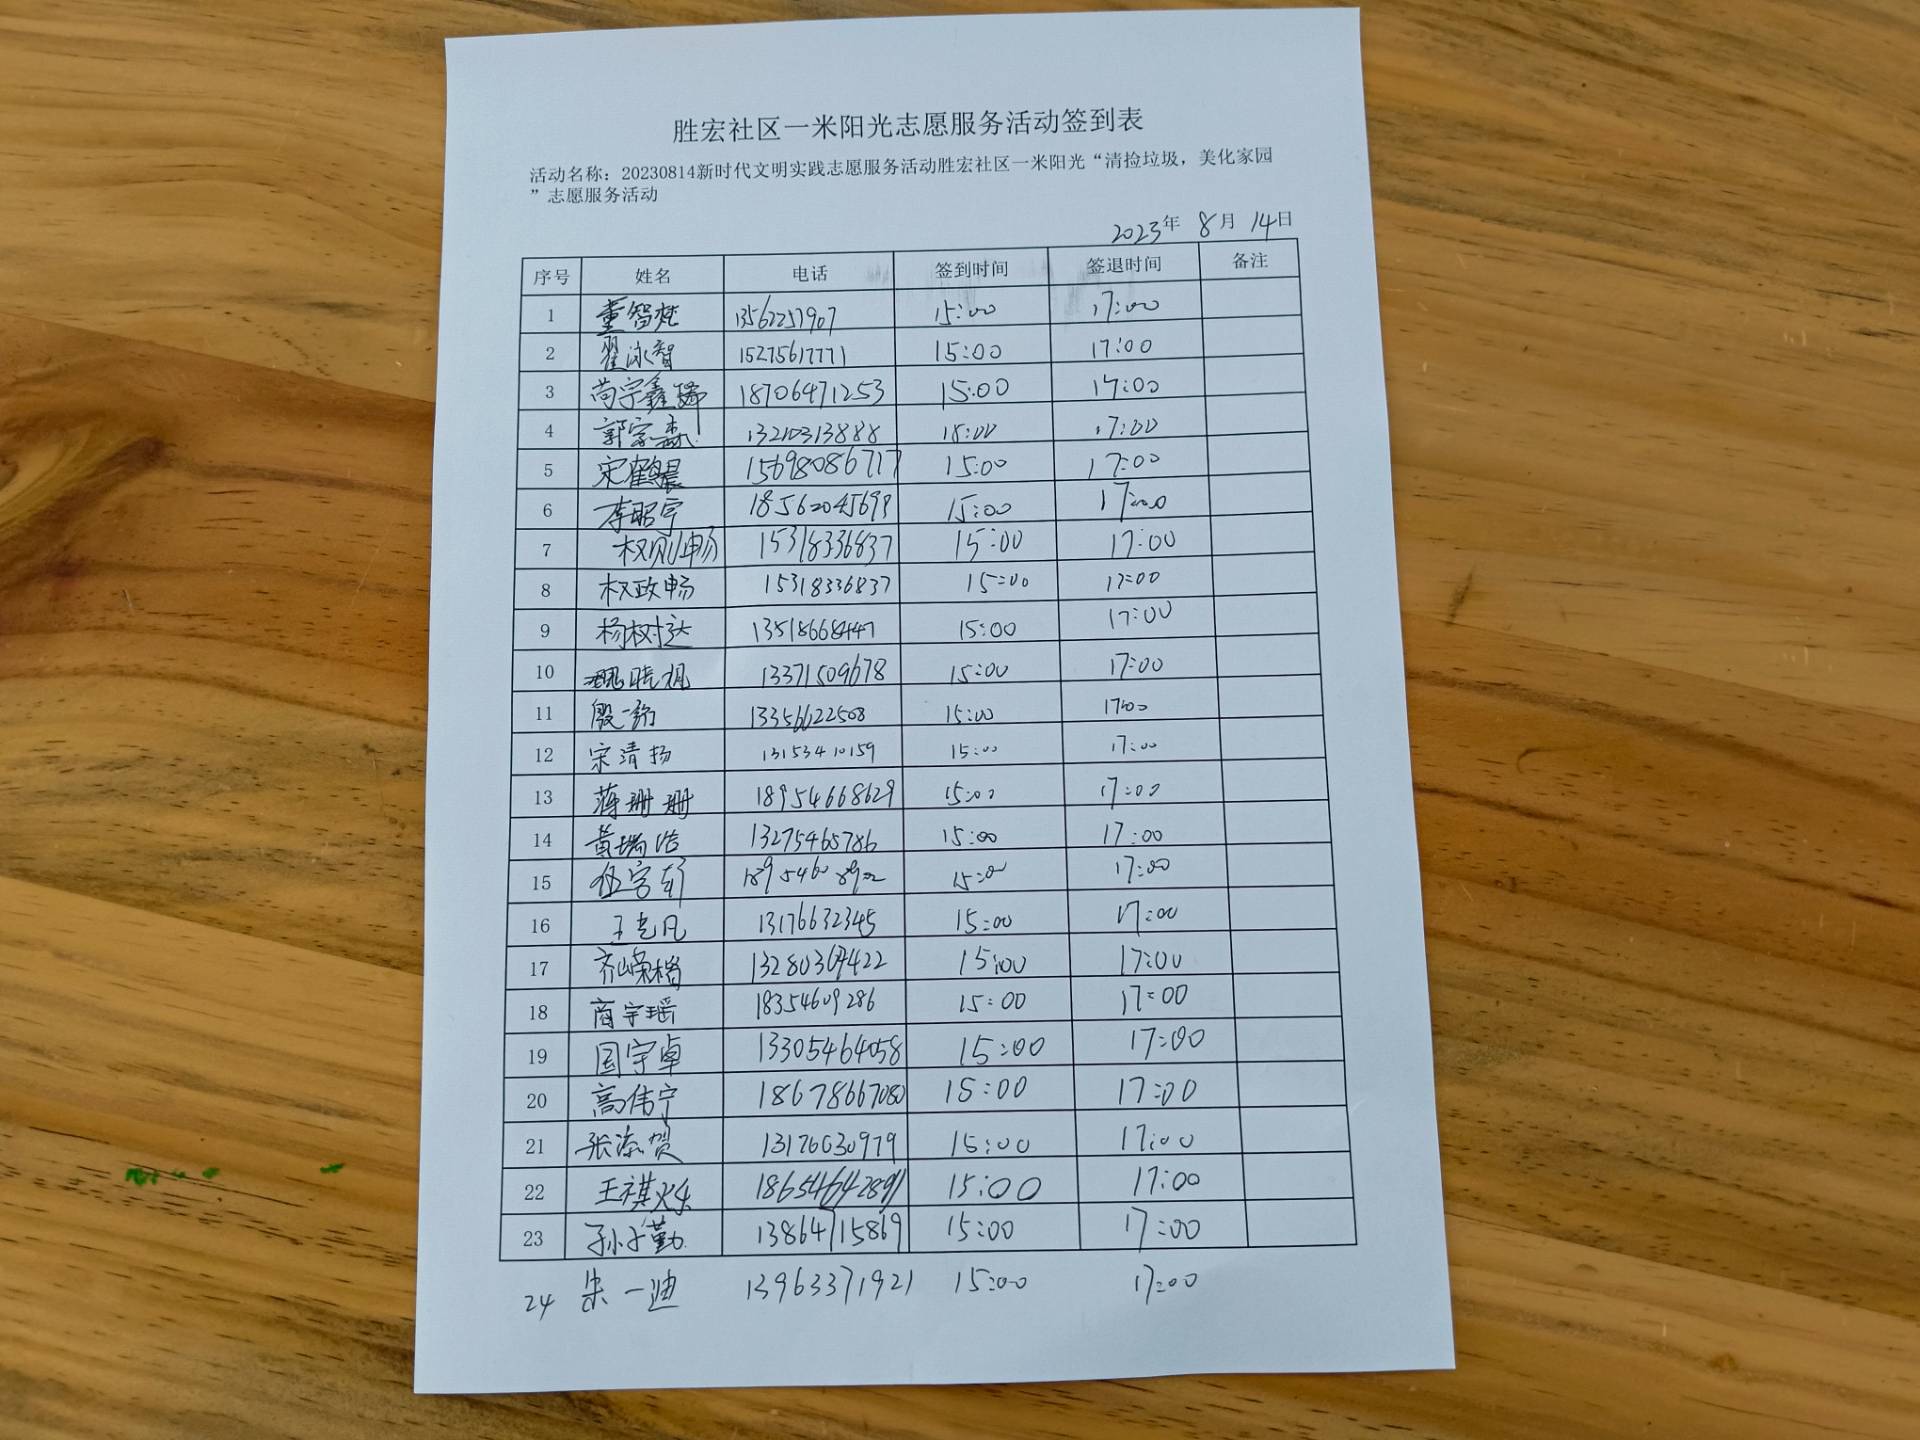 胜宏社区一米阳光志愿服务活动签到表
活动名称：20230814新时代文明实践志愿服务活动胜宏社区一米阳光“清捡垃圾，美化家园
”志愿服务活动
2023年 8月 14日
序号 姓名 电话 签到时间 签退时间 备注
1 董智梵 13562251907 15:00 17:00
2 翟泳智 15275617771 15:00 17:00
3 13706471253 15:00 17:00
4 郭家森 13210313888 15:00 17:00
5 宋鹤晨 15698086717 15:00 17:00
6 李昭宇 18562045699 15:00 17:00
7 权则畅 15318336837 15:00 17:00
8 权政畅 15318336837 15:00 17:00
9 杨树达 13518668447 15:00 17:00
10 13371509678 15:00 17:00
11 殷一 13356622508 15:00 17:00
12 宋清扬 13153410159 15:00 17:00
13 薄珊珊 18954668629 15:00 17:00
14 黄瑞浩 13275465786 15:00 17:00
15 伍宫轩 18954608902 15:00 17:00
16 王克凡 13176632345 15:00 17:00
17 齐嵘楷 13280369422 15:00 17:00
18 商宇瑶 18354609286 15:00 17:00
19 国宇卓 13305464058 15:00 17:00
20 高伟宁 18678667080 15:00 17:00
21 张添贺 13176030979 15:00 17:00
22 王祺 18654642891 15:00 17:00
23 孙子勤 13864715869 15:00 17:00
24 朱一迪 13963371921 15:00 17:00